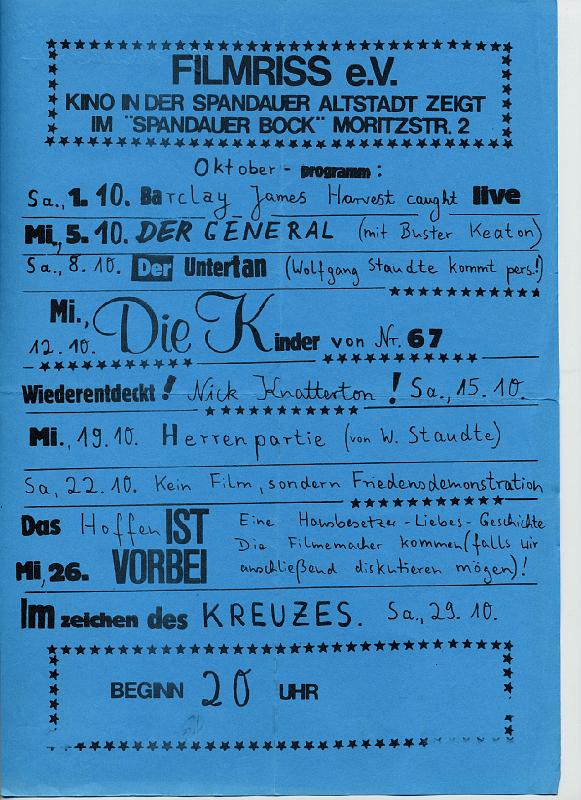 FILMRISS e.V.
KINO IN DER SPANDAUER ALTSTADT ZEIGT
IM "SPANDAUER BOCK" MORITZSTR. 2
Oktober - programm:
Sa., 1. 10. Barclay James Harvest caught live
Mi., 5. 10. DER GENERAL (mit Buster Keaton)
Sa., 8. 10. Der Untertan (Wolfgang Staudte kommt pers.!)
Mi., 12. 10. Die Kinder von Nr. 67
Wiederentdeckt! Nick Knatterton! Sa., 15. 10.
Mi., 19. 10. Herrenpartie (von W. Staudte)
Sa, 22. 10. Kein Film, sondern Friedensdemonstration
Das Hoffen IST VORBEI
Mi, 26.
Eine Hausbesetzer-Liebes-Geschichte
Die Filmemacher kommen (falls wir
anschließend diskutieren mögen)!
Im zeichen des KREUZES. Sa., 29. 10.
BEGINN 20 UHR